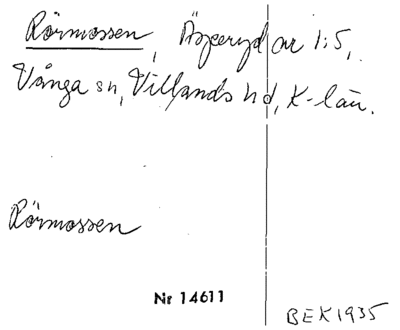 Rörmossen, Äspeeryd nr 1:5,
Vånga sn, Villands hd, K-län.
Rörmossen
Nr 14611
BEK1935